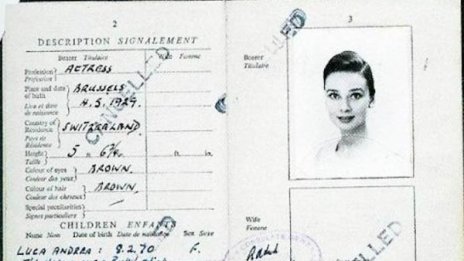 2
DESCRIPTION SIGNALEMENT
Bearer Titulaire Wife Femme
Profession ACTRESS
Profession
Place and date of birth BRUSSELS
Lieu et date de naissance 4.5.1929.
Country of Residence SWITZERLAND
Pays de Résidence
Height 5 ft. 6¾ in. ft. in.
Taille
Colour of eyes BROWN.
Couleur des yeux
Colour of hair BROWN.
Couleur des cheveux
Special peculiarities
Signes particuliers
CHILDREN ENFANTS
Name Nom Date of birth Date de naissance Sex Sexe
LUCA ANDREA : 8.2.70 F.
CANCELLED
3
CANCELLED
Bearer
Titulaire
Wife
Femme
CANCELLED